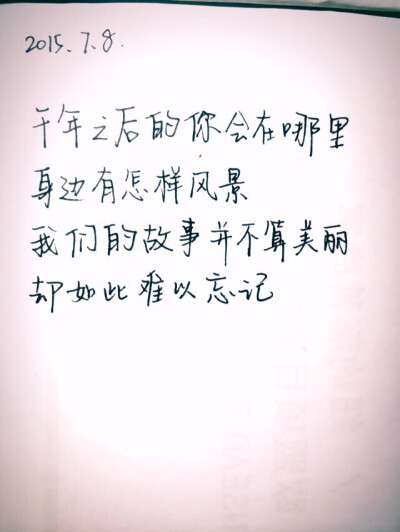 2015.7.8.
千年之后的你会在哪里
身边有怎样风景
我们的故事并不算美丽
却如此难以忘记